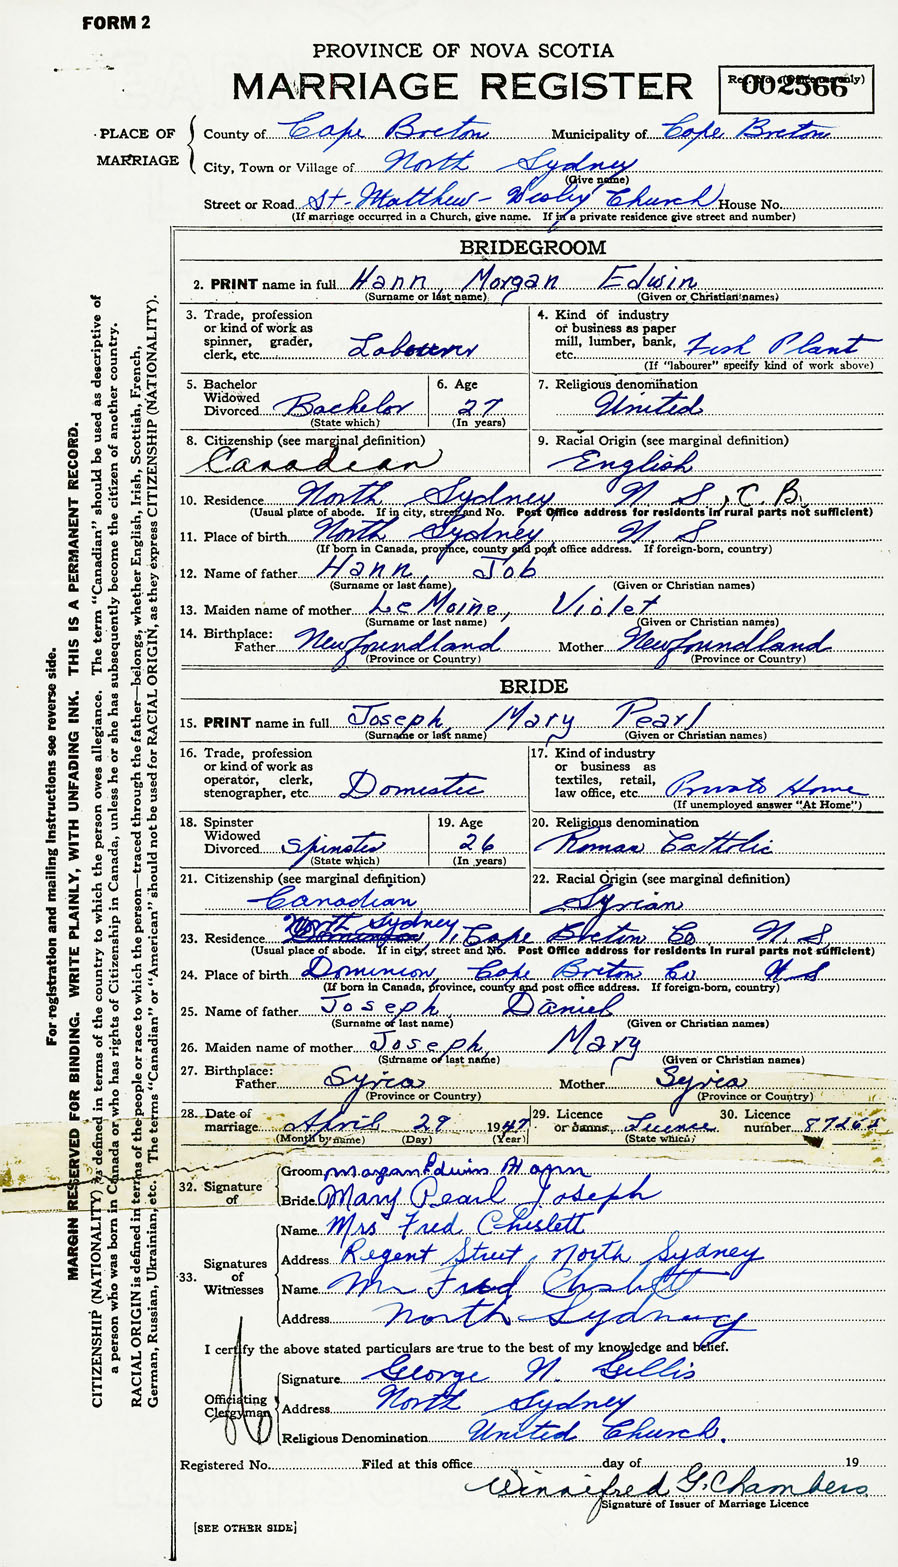 FORM 2
PROVINCE OF NOVA SCOTIA
MARRIAGE REGISTER
Reg. No. (Office use only)
002566
PLACE OF MARRIAGE
County of Cape Breton Municipality of Cape Breton
City, Town or Village of North Sydney
(Give name)
Street or Road St. Matthew - Wesley Church House No.
(If marriage occurred in a Church, give name. If in a private residence give street and number)
BRIDEGROOM
2. PRINT name in full Hann, Morgan Edwin
(Surname or last name) (Given or Christian names)
3. Trade, profession or kind of work as spinner, grader, clerk, etc. Labourer
4. Kind of industry or business as paper mill, lumber, bank, etc. Fish Plant
(If "labourer" specify kind of work above)
5. Bachelor Widowed Divorced Bachelor
(State which)
6. Age 27
(In years)
7. Religious denomination United
8. Citizenship (see marginal definition) Canadian
9. Racial Origin (see marginal definition) English
10. Residence North Sydney N S, C.B.
(Usual place of abode. If in city, street and No. Post Office address for residents in rural parts not sufficient)
11. Place of birth North Sydney, N S
(If born in Canada, province, county and post office address. If foreign-born, country)
12. Name of father Hann, Job
(Surname or last name) (Given or Christian names)
13. Maiden name of mother Le Moine, Violet
(Surname or last name) (Given or Christian names)
14. Birthplace: Father Newfoundland Mother Newfoundland
(Province or Country) (Province or Country)
BRIDE
15. PRINT name in full Joseph, Mary Pearl
(Surname or last name) (Given or Christian names)
16. Trade, profession or kind of work as operator, clerk, stenographer, etc. Domestic
17. Kind of industry or business as textiles, retail, law office, etc. Private Home
(If unemployed answer "At Home")
18. Spinster Widowed Divorced Spinster
(State which)
19. Age 26
(In years)
20. Religious denomination Roman Catholic
21. Citizenship (see marginal definition) Canadian
22. Racial Origin (see marginal definition) Syrian
North Sydney
23. Residence Cape Breton Co N. S
(Usual place of abode. If in city, street and No. Post Office address for residents in rural parts not sufficient)
24. Place of birth Dominion Cape Breton Co N S
(If born in Canada, province, county and post office address. If foreign-born, country)
25. Name of father Joseph, Daniel
(Surname or last name) (Given or Christian names)
26. Maiden name of mother Joseph, Mary
(Surname or last name) (Given or Christian names)
27. Birthplace: Father Syria Mother Syria
(Province or Country) (Province or Country)
28. Date of marriage April 29 1947
(Month by name) (Day) (Year)
29. Licence or banns Licence
(State which)
30. Licence number
32. Signature of
Groom Morgan Edwin Hann
Bride Mary Pearl Joseph
33. Signatures of Witnesses
Name Mrs Fred Chislett
Address Regent Street, North Sydney
Name Mr Fred Chislett
Address North Sydney
I certify the above stated particulars are true to the best of my knowledge and belief.
Officiating Clergyman
Signature George N. Gillis
Address North Sydney
Religious Denomination United Church.
Registered No. Filed at this office day of 19
Winnifred G. Chambers
Signature of Issuer of Marriage Licence
[SEE OTHER SIDE]
For registration and mailing instructions see reverse side.
MARGIN RESERVED FOR BINDING. WRITE PLAINLY, WITH UNFADING INK. THIS IS A PERMANENT RECORD.
CITIZENSHIP (NATIONALITY) is defined in terms of the country to which the person owes allegiance. The term "Canadian" should be used as descriptive of
a person who was born in Canada or who has rights of Citizenship in Canada, unless he or she has subsequently become the citizen of another country.
RACIAL ORIGIN is defined in terms of the people or race to which the person—traced through the father—belongs, whether English, Irish, Scottish, French,
German, Russian, Ukrainian, etc. The terms "Canadian" or "American" should not be used for RACIAL ORIGIN, as they express CITIZENSHIP (NATIONALITY).